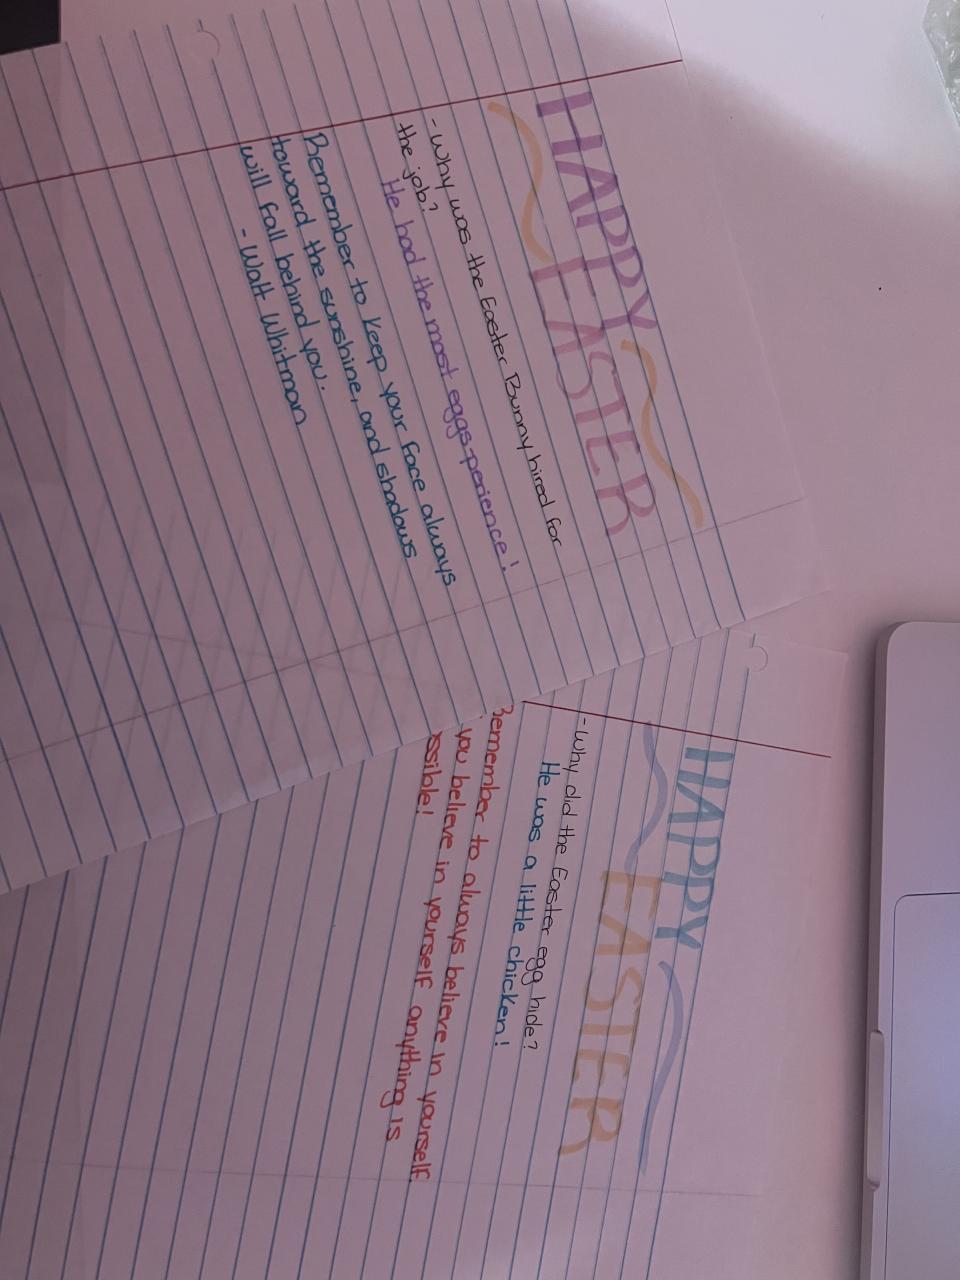 HAPPY
EASTER
- Why was the Easter Bunny hired for
the job?
He had the most eggs-perience!
Remember to keep your face always
toward the sunshine, and shadows
will fall behind you.
- Walt Whitman
HAPPY
EASTER
- Why did the Easter egg hide?
He was a little chicken!
Remember to always believe in yourself.
you believe in yourself anything is
ssible!